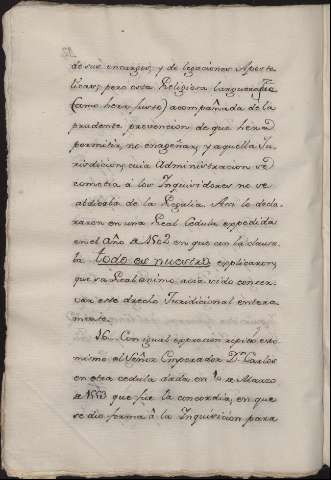 de sus encargos, y de legaciones Aposto
licas; pero esta Religiosa
(como hera justo) acompañada de la
prudente prevencion de que hera
permitir, no enagenar, y aquella Ju
risdicion, cuia Administracion se
cometia á los Inquisidores no se
abdicaba de la Regalia. Asi lo decla
raron en una Real Cedula expedida
en el año de en que con la clausu
la todo es nuestro explicaron,
que su Real animo avia sido conser
var este drecho Juridicional entera
mente.
16. Con igual expresion repitió lo
mismo el Señor Emperador Dn. Carlos
en otra cedula dada en 10 de Marzo
de 1553 que fue la concordia, en que
se dió forma á la Inquisicion para